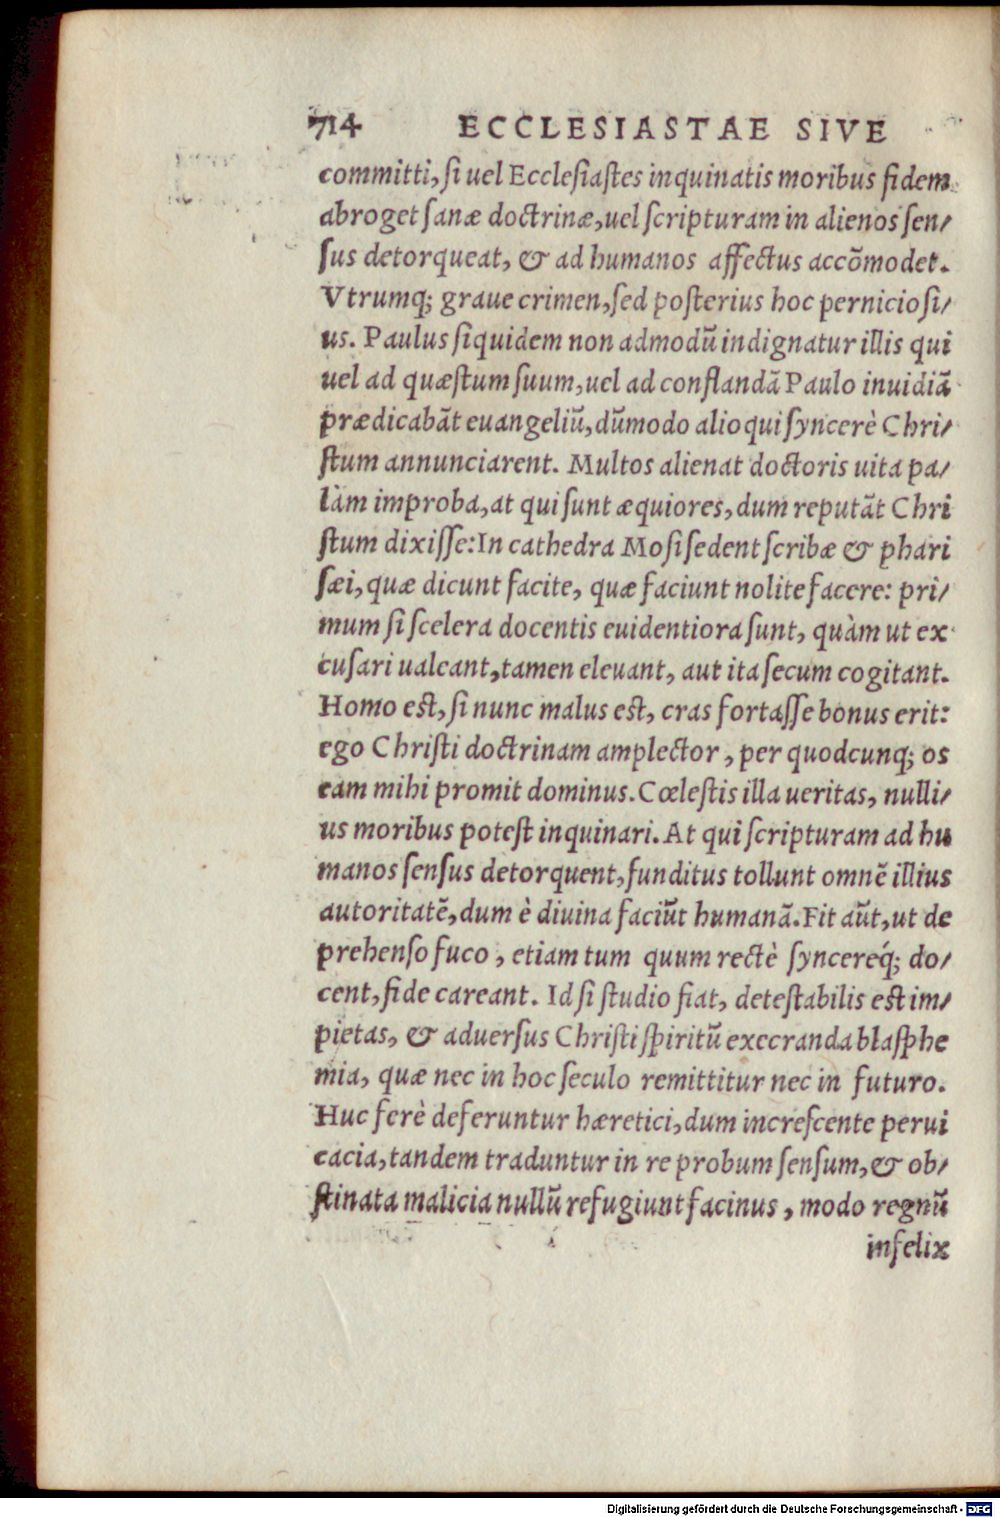 714 ECCLESIASTAE SIVE
committi, ſi uel Eccleſiaſtes inquinatis moribus fidem
abroget ſanæ doctrinæ, uel ſcripturam in alienos ſen/
ſus detorqueat, & ad humanos affectus accõmodet.
Vtrumq; graue crimen, ſed poſterius hoc pernicioſi/
us. Paulus ſiquidem non admodũ indignatur illis qui
uel ad quæſtum ſuum, uel ad conflandã Paulo inuidiã
prædicabãt euangeliũ, dũmodo alioqui ſyncerè Chri/
ſtum annunciarent. Multos alienat doctoris uita pa/
làm improba, at qui ſunt æquiores, dum reputãt Chri
ſtum dixiſſe: In cathedra Moſi ſedent ſcribæ & phari
ſæi, quæ dicunt facite, quæ faciunt nolite facere: pri/
mum ſi ſcelera docentis euidentiora ſunt, quàm ut ex
cuſari ualeant, tamen eleuant, aut ita ſecum cogitant.
Homo eſt, ſi nunc malus eſt, cras fortaſſe bonus erit:
ego Chriſti doctrinam amplector, per quodcunq; os
eam mihi promit dominus. Cœleſtis illa ueritas, nulli/
us moribus poteſt inquinari. At qui ſcripturam ad hu
manos ſenſus detorquent, funditus tollunt omnẽ illius
autoritatẽ, dum è diuina faciũt humanã. Fit aũt, ut de
prehenſo fuco, etiam tum quum rectè ſyncereq́; do/
cent, fide careant. Id ſi ſtudio fiat, deteſtabilis eſt im/
pietas, & aduerſus Chriſti ſpiritũ execranda blaſphe
mia, quæ nec in hoc ſeculo remittitur nec in futuro.
Huc ferè deferuntur hæretici, dum increſcente perui
cacia, tandem traduntur in reprobum ſenſum, & ob/
ſtinata malicia nullũ refugiunt facinus, modo regnũ
infelix
Digitalisierung gefördert durch die Deutsche Forschungsgemeinschaft - DFG